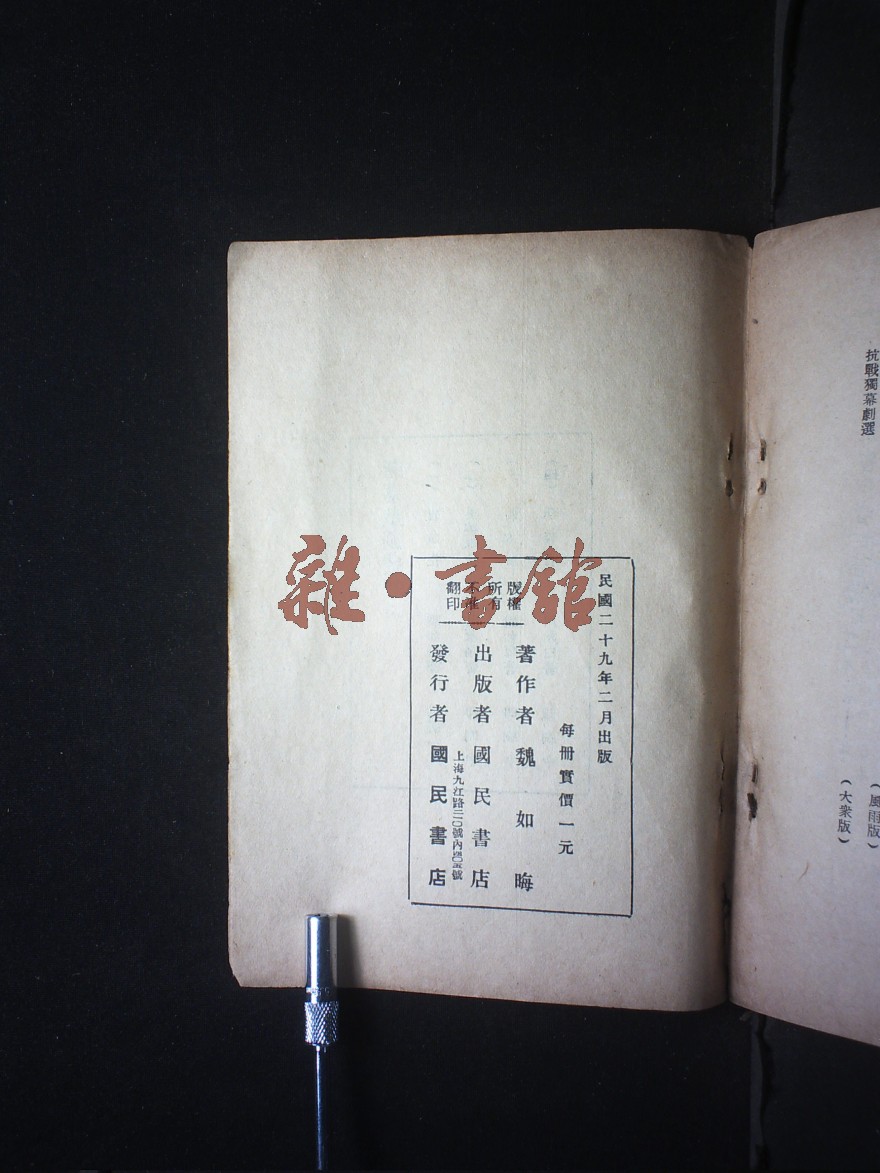 抗戰獨幕劇選
（風雨版）
（大衆版）
民國二十九年二月出版
每冊實價一元
版權
所有
不准
翻印
著作者魏如晦
出版者國民書店
上海九江路二一〇號內
發行者國民書店
雜·書館